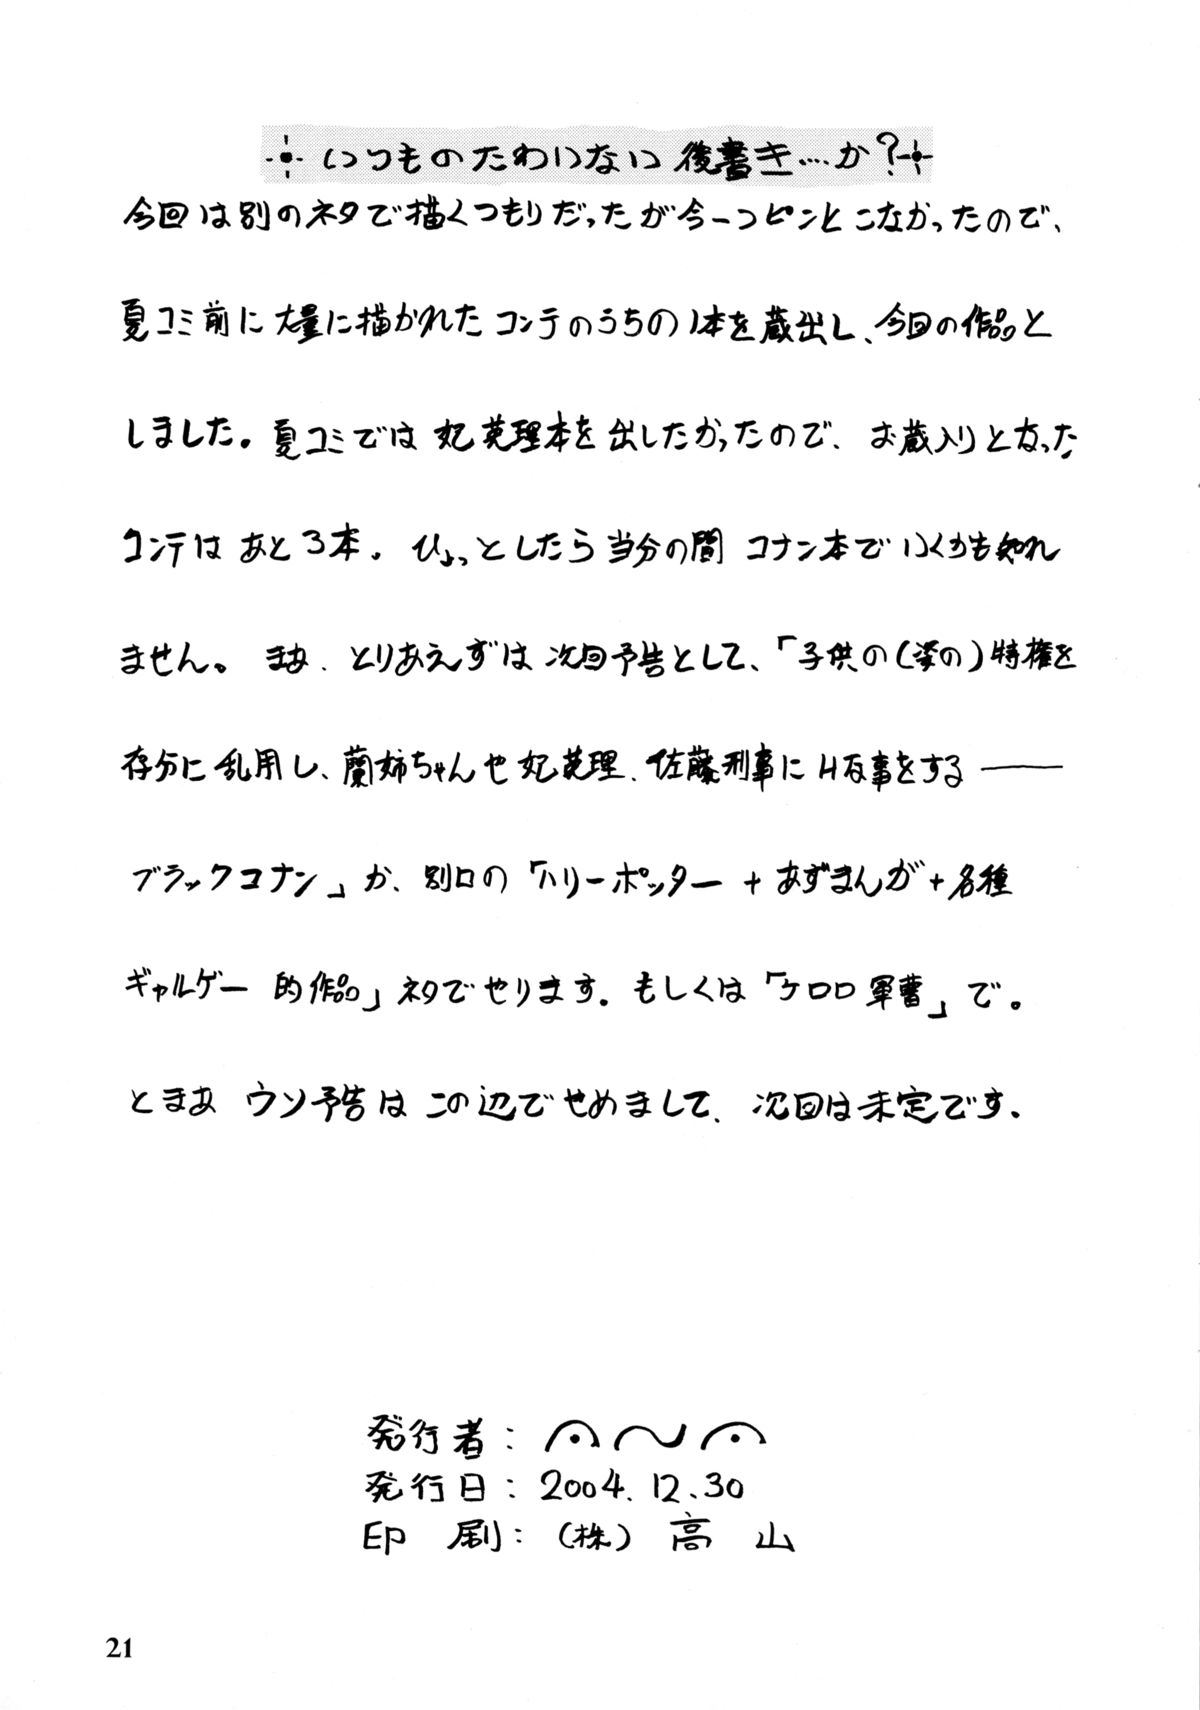 いつものたわいない後書き....か?
今回は別のネタで描くつもりだったが今一つピンとこなかったので、
夏コミ前に大量に描かれたコンテのうちの1本を蔵出し、今回の作品と
しました。夏コミでは妃英理本を出したかったので、お蔵入りとなった
コンテはあと3本。ひょっとしたら当分の間コナン本でいくかも知れ
ません。まあ、とりあえずは次回予告として、「子供の(姿の)特権を
存分に乱用し、蘭姉ちゃんや妃英理、佐藤刑事にHな事をする――
ブラックコナン」か、別口の「ハリーポッター+あずまんが+各種
ギャルゲー的作品」ネタでやります。もしくは「ケロロ軍曹」で。
とまあウソ予告はこの辺でせめまして、次回は未定です。
発行者:
発行日:2004.12.30
印刷:(株)高山
21